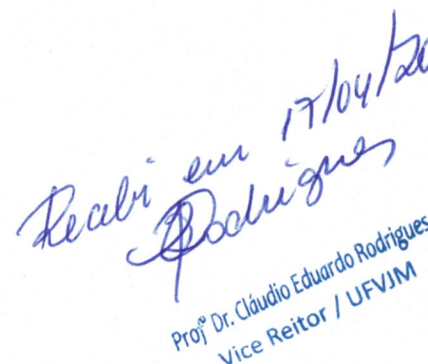 Recebi em 17/04/20
Rodrigues
Profº Dr. Cláudio Eduardo Rodrigues
Vice Reitor / UFVJM